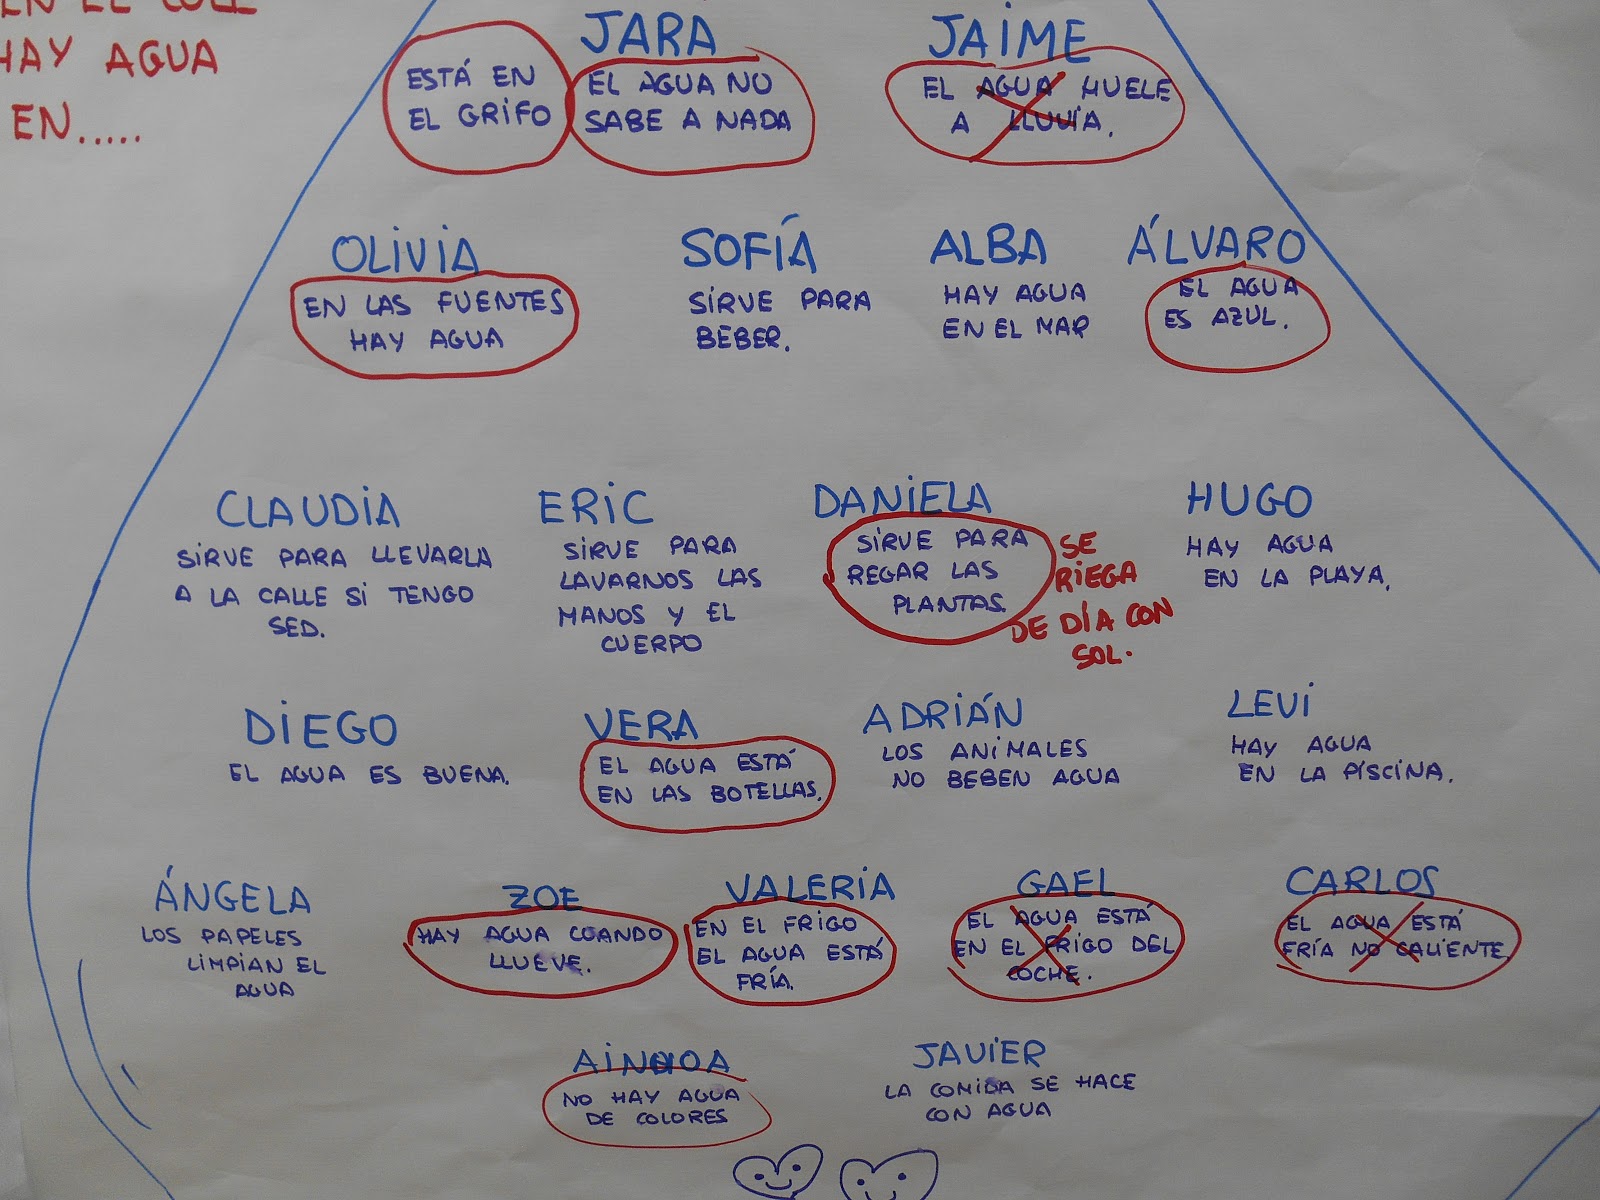 EN EL COLE
HAY AGUA
EN.....
JARA
ESTÁ EN
EL GRIFO
EL AGUA NO
SABE A NADA
JAIME
EL AGUA HUELE
A LLUVIA.
OLIVIA
EN LAS FUENTES
HAY AGUA
SOFÍA
SIRVE PARA
BEBER.
ALBA
HAY AGUA
EN EL MAR
ÁLVARO
EL AGUA
ES AZUL.
CLAUDIA
SIRVE PARA LLEVARLA
A LA CALLE SI TENGO
SED.
ERIC
SIRVE PARA
LAVARNOS LAS
MANOS Y EL
CUERPO
DANIELA
SIRVE PARA
REGAR LAS
PLANTAS.
SE
RIEGA
DE DÍA CON
SOL.
HUGO
HAY AGUA
EN LA PLAYA.
DIEGO
EL AGUA ES BUENA.
VERA
EL AGUA ESTÁ
EN LAS BOTELLAS.
ADRIÁN
LOS ANIMALES
NO BEBEN AGUA
LEVI
HAY AGUA
EN LA PISCINA.
ÁNGELA
LOS PAPELES
LIMPIAN EL
AGUA
ZOE
HAY AGUA CUANDO
LLUEVE.
VALERIA
EN EL FRIGO
EL AGUA ESTÁ
FRÍA.
GAEL
EL AGUA ESTÁ
EN EL FRIGO DEL
COCHE.
CARLOS
EL AGUA ESTÁ
FRÍA NO CALIENTE.
AINHOA
NO HAY AGUA
DE COLORES
JAVIER
LA COMIDA SE HACE
CON AGUA